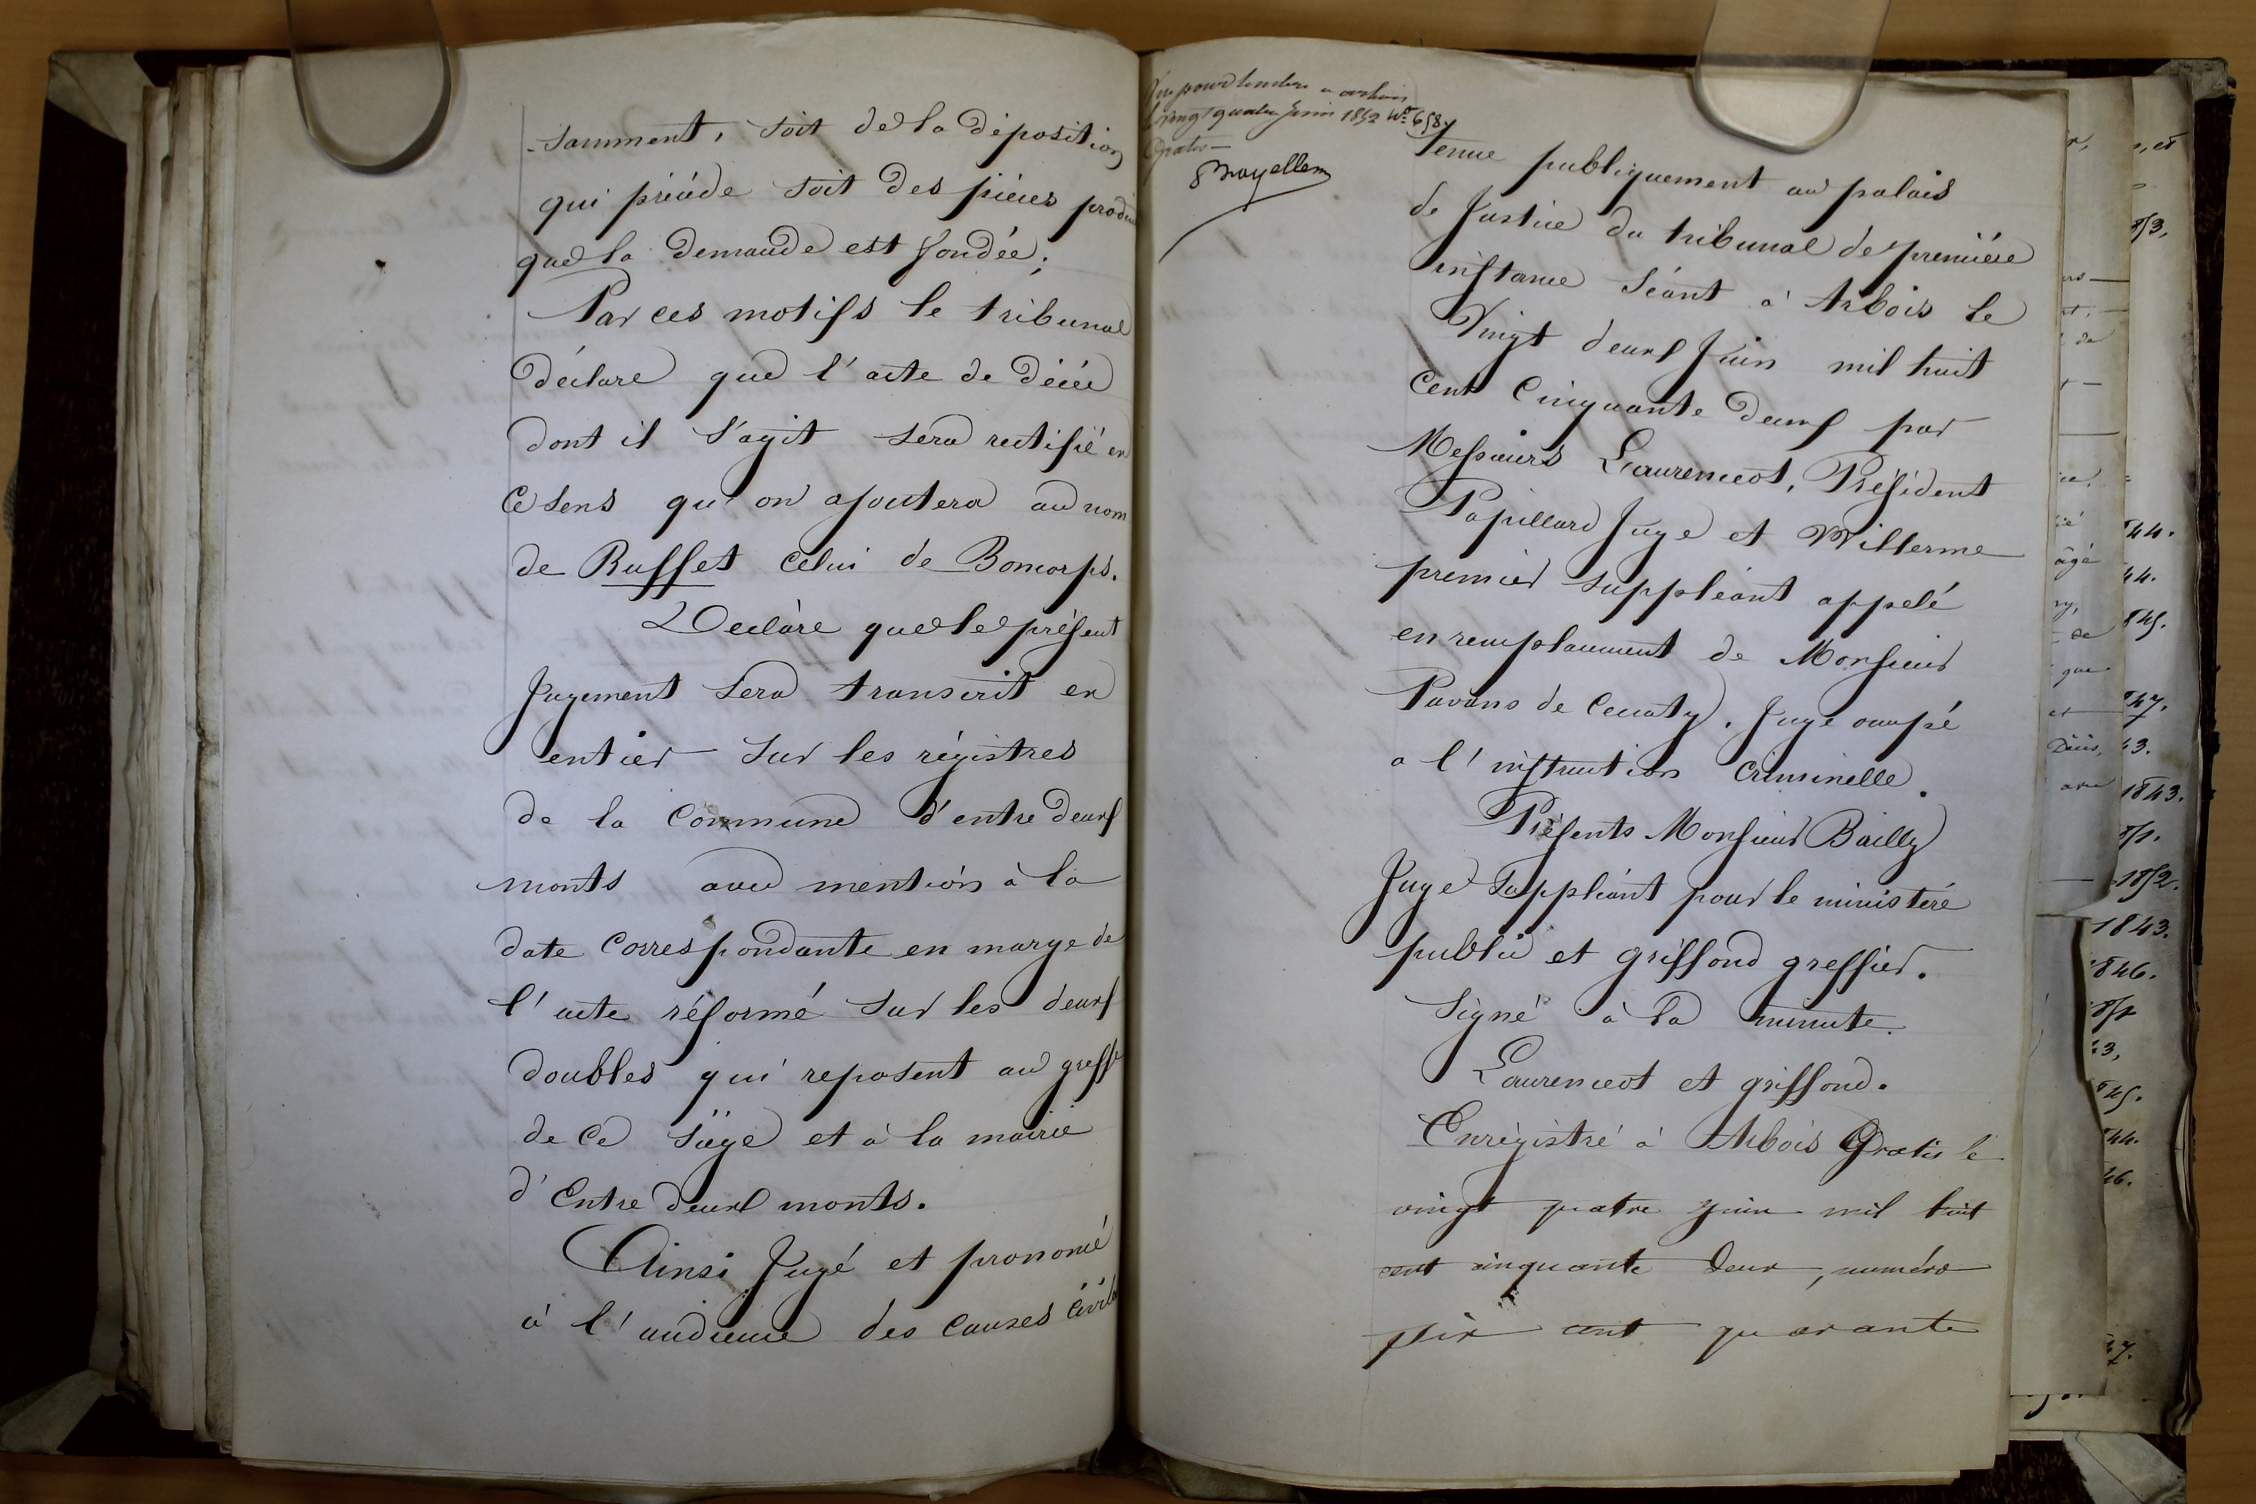 -samment, soit de la déposition
qui précède soit des pièces produi
que la demande est fondée;
Par ces motifs le tribunal
déclare que l'acte de décès
dont il s'agit sera rectifié en
ce sens qu'on ajoutera au nom
de Buffet celui de Boncorps.
Declàre que le présent
Jugement sera transcrit en
entier sur les régistres
de la Commune d'entre deux
monts avec mention à la
date correspondante en marge de
l'acte réformé sur les deux
doubles qui reposent au greffe
de ce siège et à la mairie
d'Entre deux monts.
Ainsi Jugé et prononcé
à l'audience des causes civiles
Vu pour timbre a arbois
le vingt quatre Juin 1852 No 658.
Gratis
Tenue publiquement au palais
de Justice du tribunal de première
instance séant à Arbois le
Vingt deux Juin mil huit
Cent Cinquante deux par
Messieurs Laurenceot, Président
Papillard Juge et Willerme
premier suppléant appelé
en remplacement de Monsieur
Pavans de Ceccaty. Juge occupé
a l'instruction criminelle.
Présents Monsieur Bailly
Juge suppléant pour le ministère
public et griffond greffier.
Signé à la minute.
Laurenceot et griffond.
Enrégistré à Arbois Gratis le
vingt quatre juin mil huit
cent cinquante deux, numéro
six cent quarante